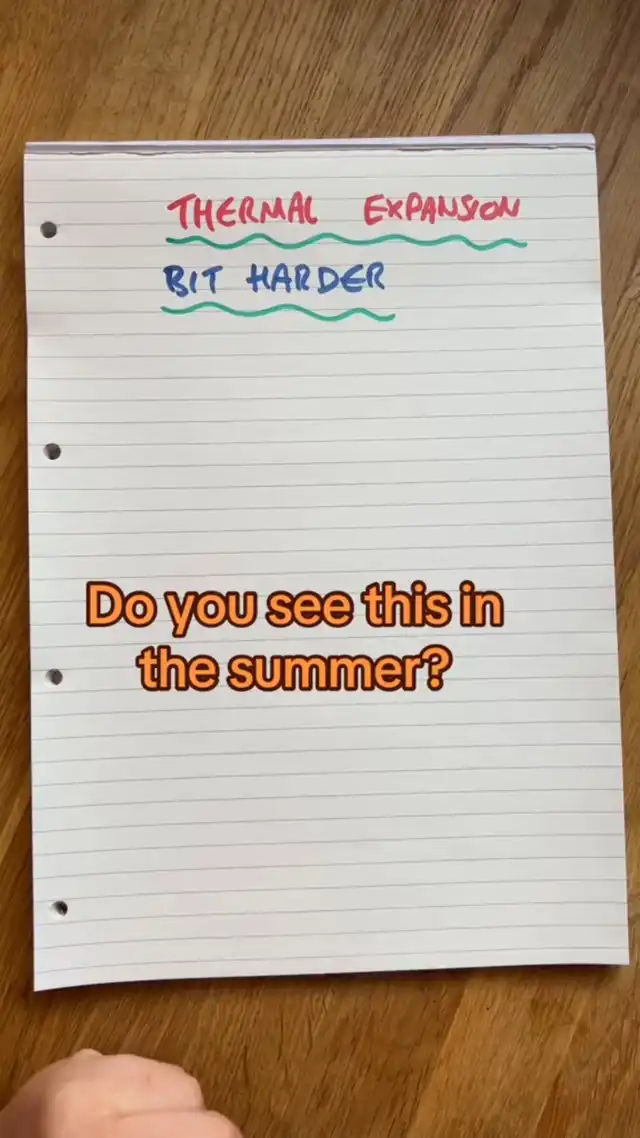 THERMAL EXPANSION
BIT HARDER
Do you see this in
the summer?